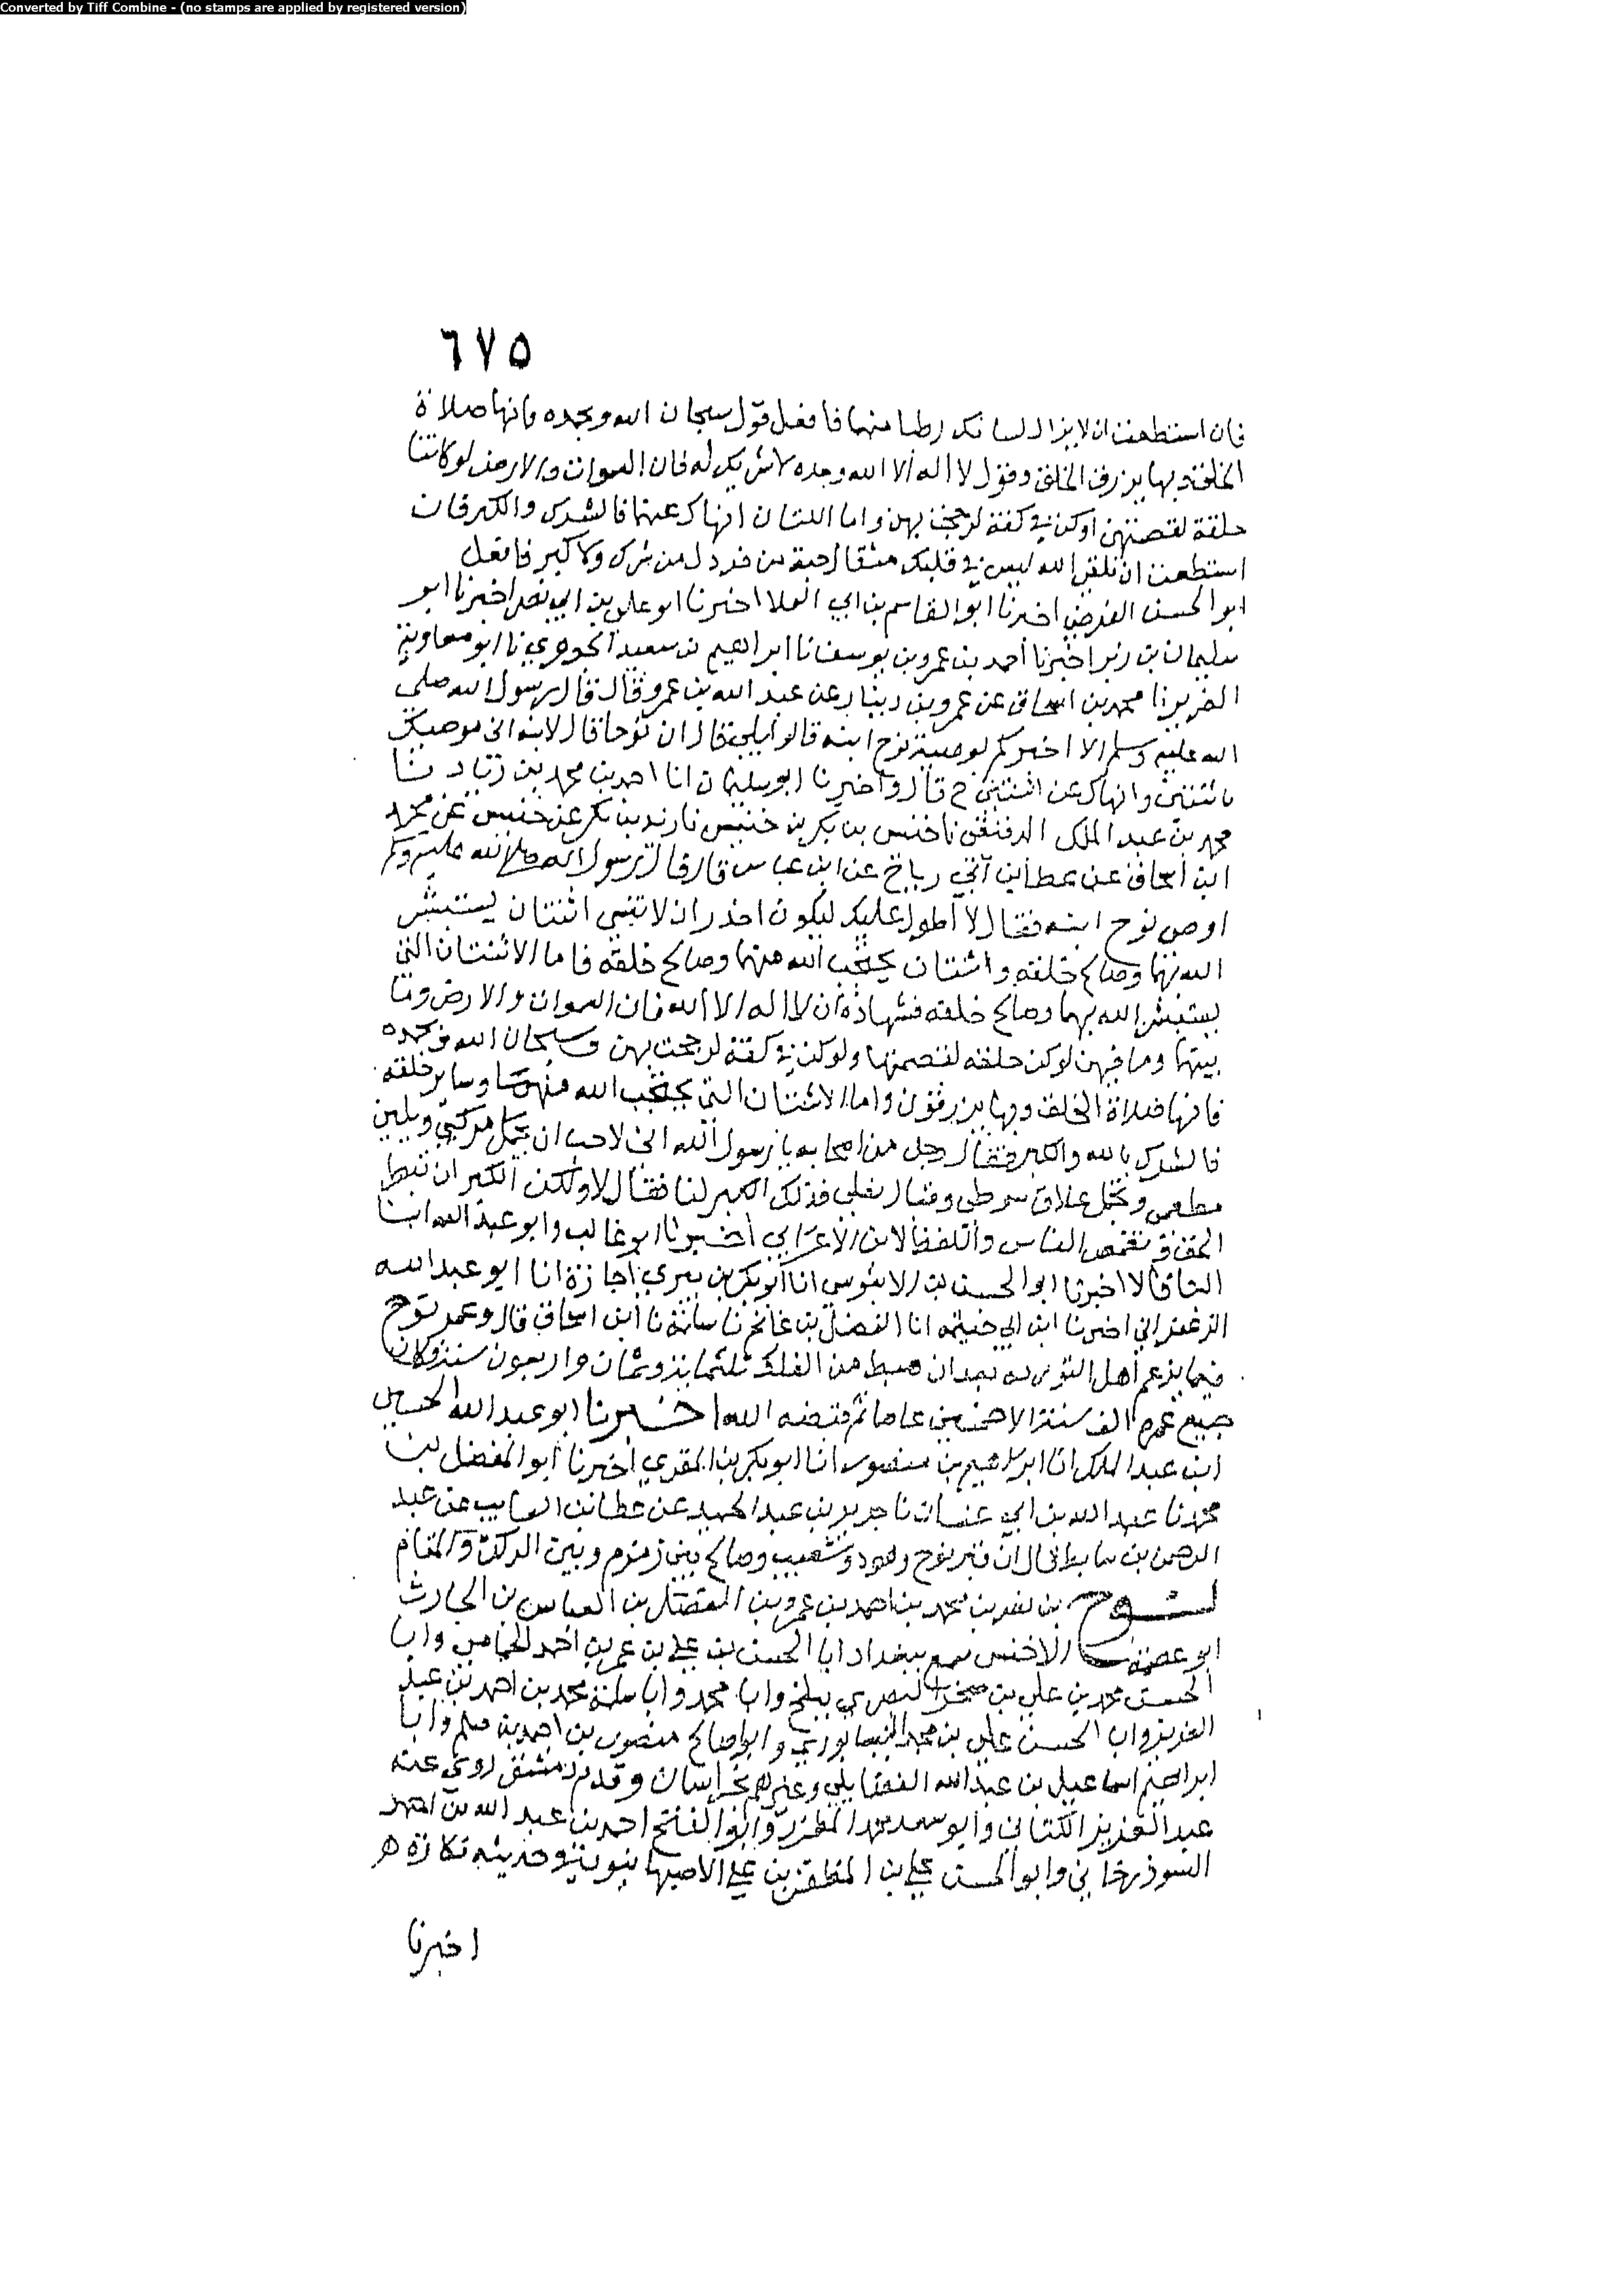 Converted by Tiff Combine - (no stamps are applied by registered version)
٦٧٥
فان استطعت ان لا يزال لسانك رطبا منها فافعل قول سبحان الله وبحمده فانها صلاة
الخلق وبها يرزق الخلق وقول لا اله الا الله وحده لا شريك له فان السموات والارض لو كانتا
حلقة لقصمتهن او كن في كفة لرجحت بهن واما اللتان انهاك عنهما فالشرك والكبر فان
استطعت ان تلقى الله ليس في قلبك مثقال حبة من خردل من شرك ولا كبر فافعل
ابو الحسن الفرضي اخبرنا ابو القاسم بن ابي العلا اخبرنا ابو علي بن ابي نصر اخبرنا ابو
سليمان بن زبر اخبرنا احمد بن عمرو بن يوسف نا ابراهيم بن سعيد الجوهري نا ابو معاوية
الضرير نا محمد بن اسحاق عن عمرو بن دينار عن عبد الله بن عمرو قال قال رسول الله صلى
الله عليه وسلم الا اخبركم بوصية نوح ابنه قالوا بلى قال ان نوحا قال لابنه اني موصيك
باثنتين وانهاك عن اثنتين ح قال واخبرنا ابو سليمان انا احمد بن محمد بن زياد نا
محمد بن عبد الملك الدقيقي نا خنيس بن بكر بن خنيس نا زيد بن بكر عن خنيس عن محمد
ابن اسحاق عن عطا بن ابي رباح عن ابن عباس قال قال رسول الله صلى الله عليه وسلم
اوصى نوح ابنه فقال لا اطول عليك ليكون اخذر ان لا تنسى اثنتان يستبشر
الله بهما وصالح خلقه واثنتان يحتجب الله منهما وصالح خلقه فاما الاثنتان التي
يستبشر الله بهما وصالح خلقه فشهادة ان لا اله الا الله فان السموات والارض وما
بينهما وما فيهن لو كن حلقه لقصمتها ولو كن في كفة لرجحت بهن وسبحان الله وبحمده
فانها صلاة الخلق وبها يرزقون واما الاثنتان التي يحتجب الله منهما وساير خلقه
فالشرك بالله والكبر فقال رجل من اصحابه يا رسول الله اني لاحب ان يجمل مركبي ويلين
مطعمي ويجمل علاق سوطي وقبال نعلي فذلك الكبر لنا فقال لا ولكن الكبر ان تبطر
الحق وتغمص الناس واللفظ لابن الاعرابي اخبرنا ابو غالب وابو عبد الله ابنا
البنا قالا اخبرنا ابو الحسين بن الابنوسي انا ابو بكر بن بيري اجازة انا ابو عبد الله
الزعفراني اخبرنا ابن ابي خيثمه انا الفضل بن غانم نا سلمة نا ابن اسحاق قال وعمر نوح
فيما يزعم اهل التوراه بعد ان هبط من الفلك ثلثماية وثمان واربعون سنة وكان
جميع عمره الف سنة الا خمسين عاما ثم قبضه الله اخبرنا ابو عبد الله الحسين
ابن عبد الملك انا ابراهيم بن منصور انا ابو بكر بن المقري اخبرنا ابو المفضل بن
محمد نا عبد الله بن ابي غسان نا جرير بن عبد الحميد عن عطا بن السايب عن عبد
الرحمن بن سابط قال ان قبر نوح وهود وشعيب وصالح بين زمزم وبين الركن والمقام
نوح بن نصر بن محمد بن احمد بن عمرو بن الفضل بن العباس بن الحارث
ابو عصمة الاخنسي سمع ببغداد ابا الحسن بن علي بن عمر بن احمد الحمامي وابا
الحسن محمد بن علي بن صخر البصري ببلخ وابا محمد وابا سلمة محمد بن احمد بن عبد
العزيز وابا الحسن علي بن محمد النيسابوري وابو صالح منصور بن احمد بن مسلم وابا
ابراهيم اسماعيل بن عبد الله وغيرهم بخراسان وقدم دمشق روى عنه
عبد العزيز الكتاني وابو سعد محمد المطرز وابو الفتح احمد بن عبد الله بن احمد
السوذرجاني وابو الحسن علي بن المظفر بن علي الاصبهانيون وحديثه نكارة ه
اخبرنا